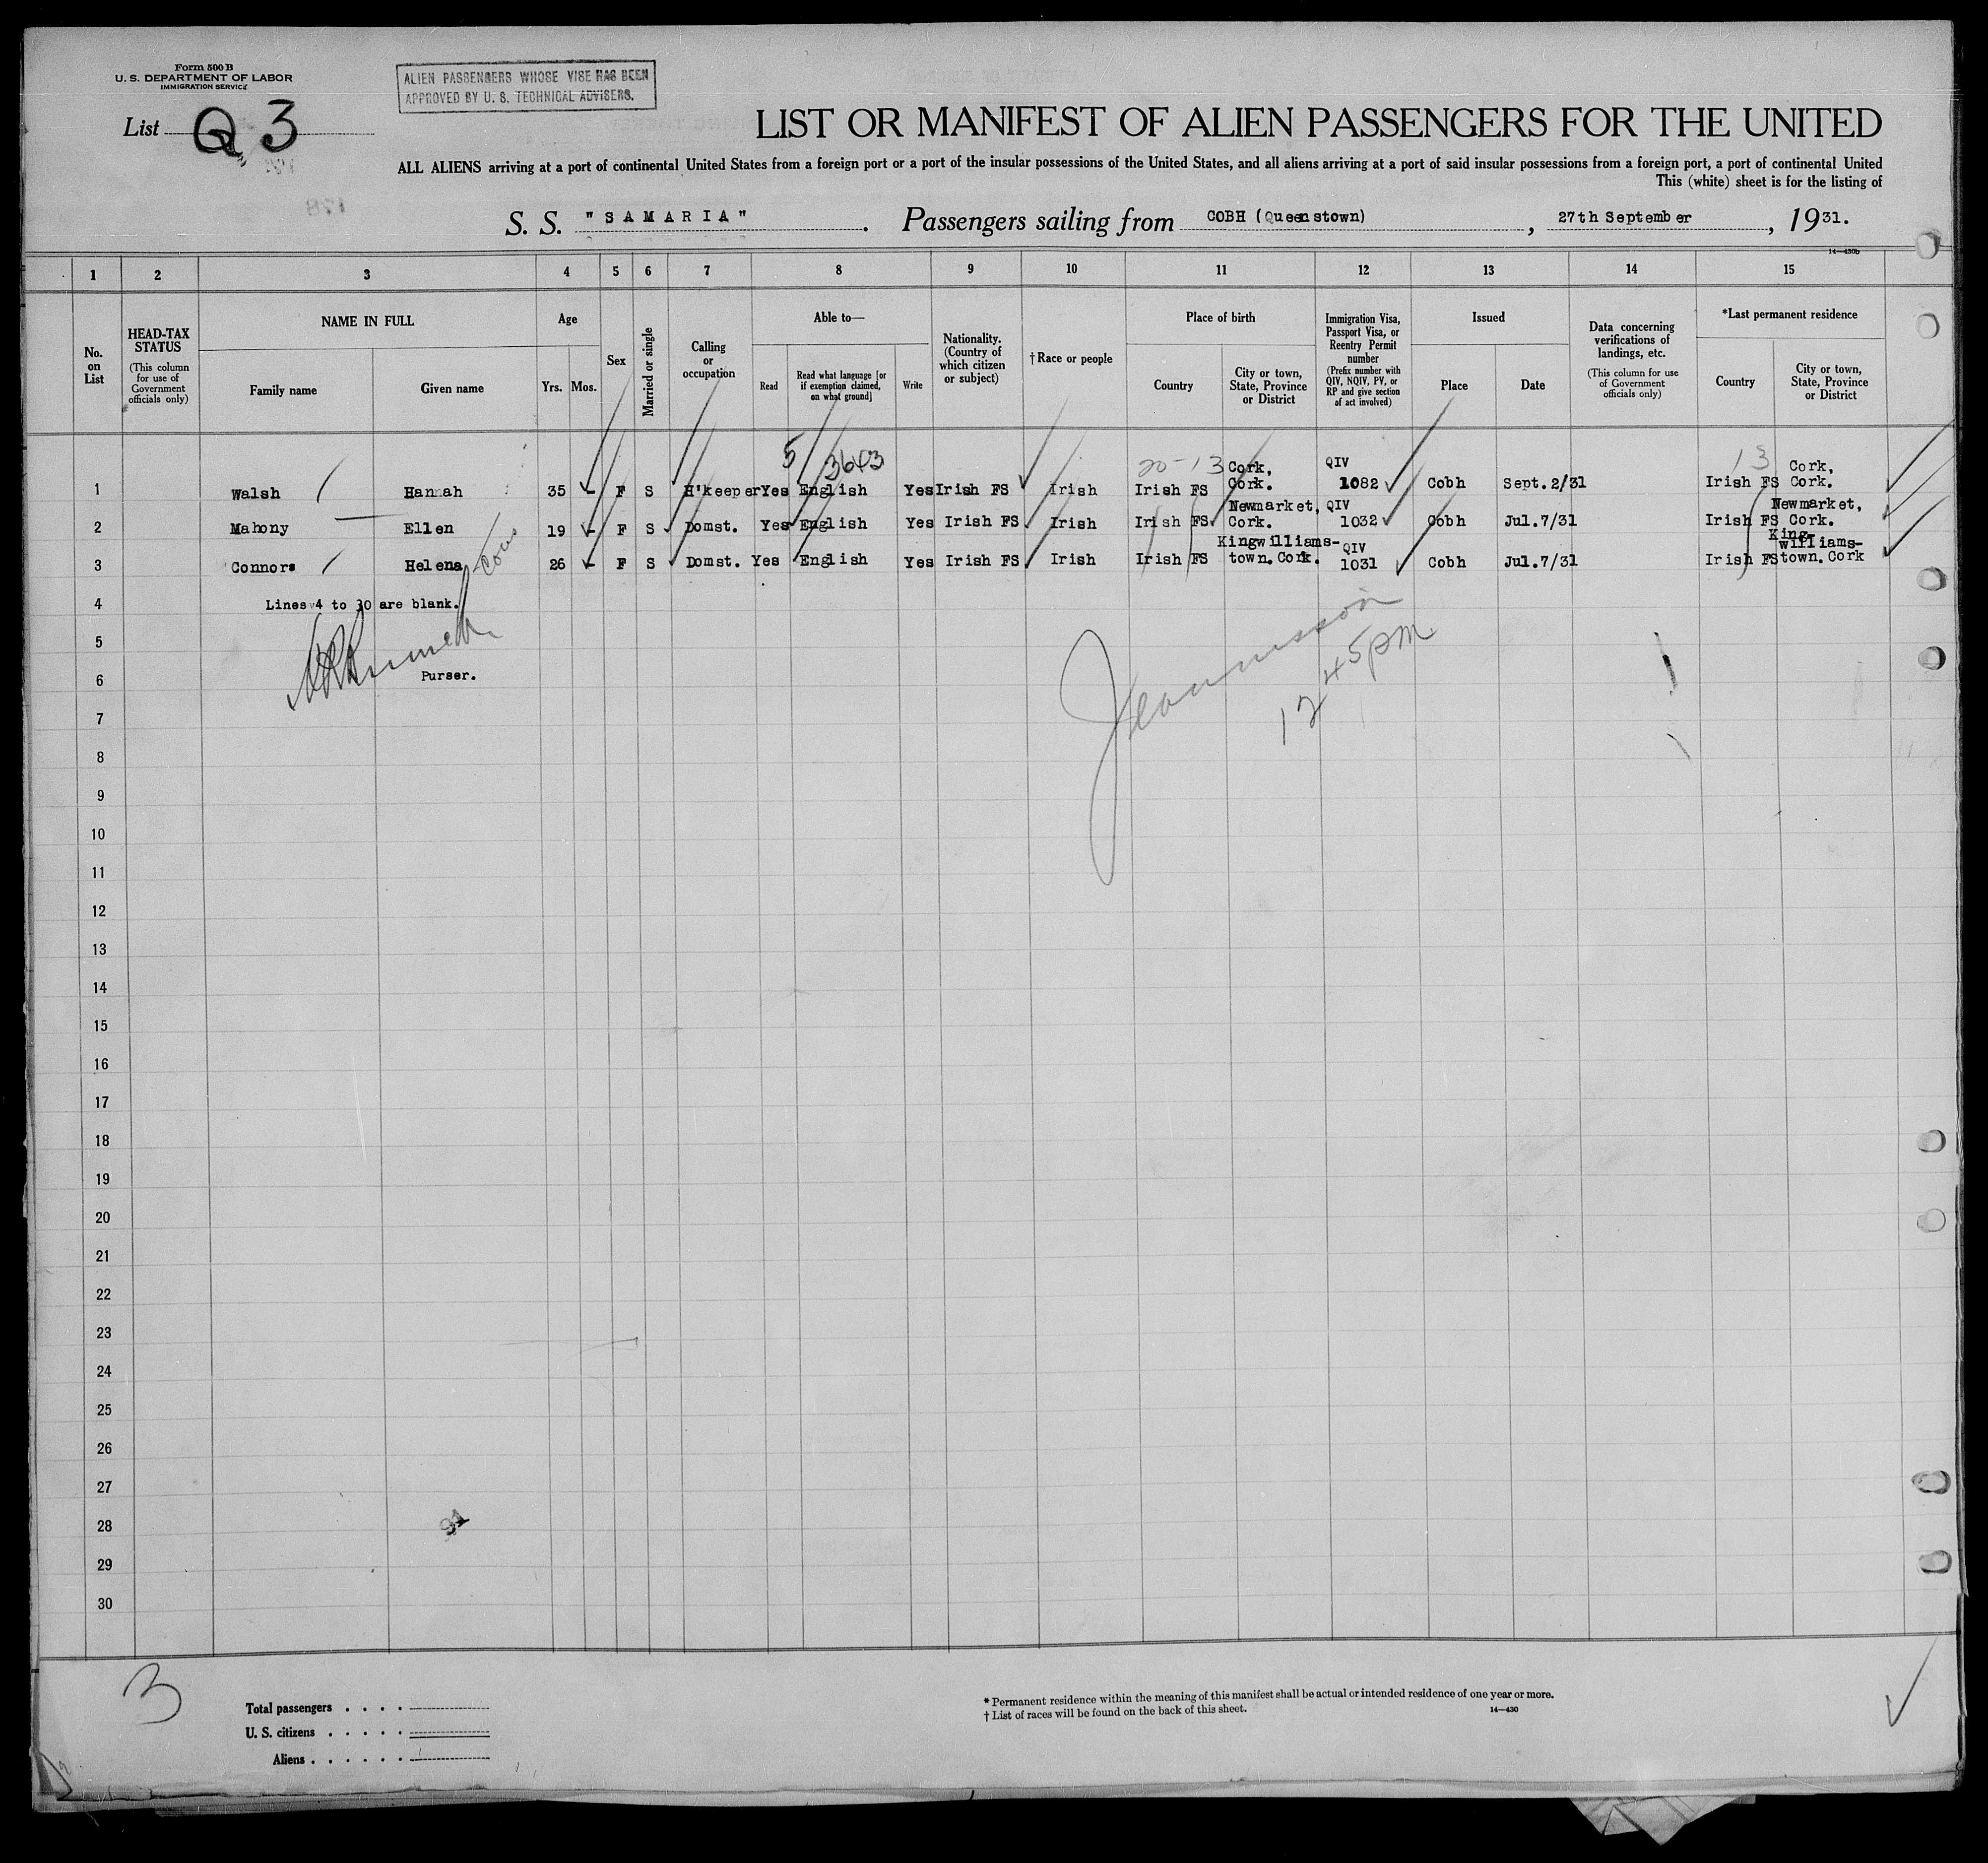 Form 500 B
U. S. DEPARTMENT OF LABOR
IMMIGRATION SERVICE
ALIEN PASSENGERS WHOSE VISE HAS BEEN
APPROVED BY U. S. TECHNICAL ADVISERS.
List Q 3
LIST OR MANIFEST OF ALIEN PASSENGERS FOR THE UNITED
ALL ALIENS arriving at a port of continental United States from a foreign port or a port of the insular possessions of the United States, and all aliens arriving at a port of said insular possessions from a foreign port, a port of continental United
This (white) sheet is for the listing of
178
S. S. "SAMARIA". Passengers sailing from COBH (Queenstown), 27th September, 1931.
14—430b
1 2 3 4 5 6 7 8 9 10 11 12 13 14 15
No. on List
HEAD-TAX STATUS
(This column for use of Government officials only)
NAME IN FULL
Family name
Given name
Age
Yrs.
Mos.
Sex
Married or single
Calling or occupation
Able to—
Read
Read what language [or if exemption claimed, on what ground]
Write
Nationality. (Country of which citizen or subject)
†Race or people
Place of birth
Country
City or town, State, Province or District
Immigration Visa, Passport Visa, or Reentry Permit number
(Prefix number with QIV, NQIV, PV, or RP and give section of act involved)
Issued
Place
Date
Data concerning verifications of landings, etc.
(This column for use of Government officials only)
*Last permanent residence
Country
City or town, State, Province or District
5 3643 20-13 13
1 Walsh Hannah 35 - F S H'keeper Yes English Yes Irish FS Irish Irish FS Cork, Cork. QIV 1082 Cobh Sept.2/31 Irish FS Cork, Cork.
2 Mahony Ellen 19 - F S Domst. Yes English Yes Irish FS Irish Irish FS Newmarket, Cork. QIV 1032 Cobh Jul.7/31 Irish FS Newmarket, Cork.
3 Connors Helena 26 - F S Domst. Yes English Yes Irish FS Irish Irish FS Kingwilliams-town.Cork. QIV 1031 Cobh Jul.7/31 Irish FS King-williams-town.Cork
Cous
4 Lines 4 to 30 are blank.
5
6 Purser.
12 45 pm.
7
8
9
10
11
12
13
14
15
16
17
18
19
20
21
22
23
24
25
26
27
28
29
30
3
Total passengers
U. S. citizens
Aliens
* Permanent residence within the meaning of this manifest shall be actual or intended residence of one year or more.
† List of races will be found on the back of this sheet.
14—430